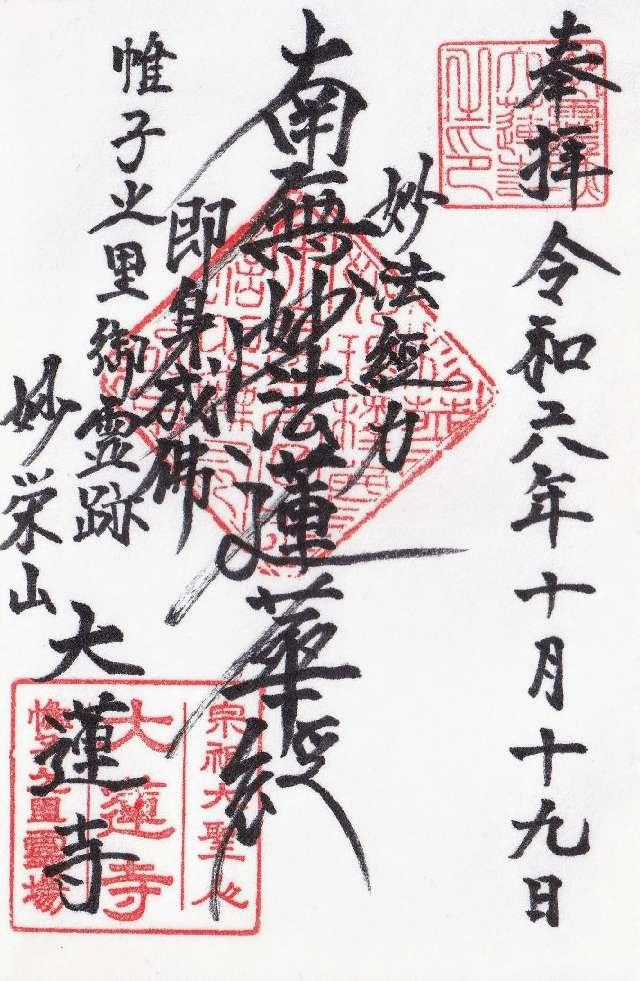 奉拝
令和六年十月十九日
妙法經力
南無妙法蓮華経
即身成佛
帷子之里御霊跡
妙栄山
大蓮寺
宗祖大聖人
大蓮寺
帷子之里霊場